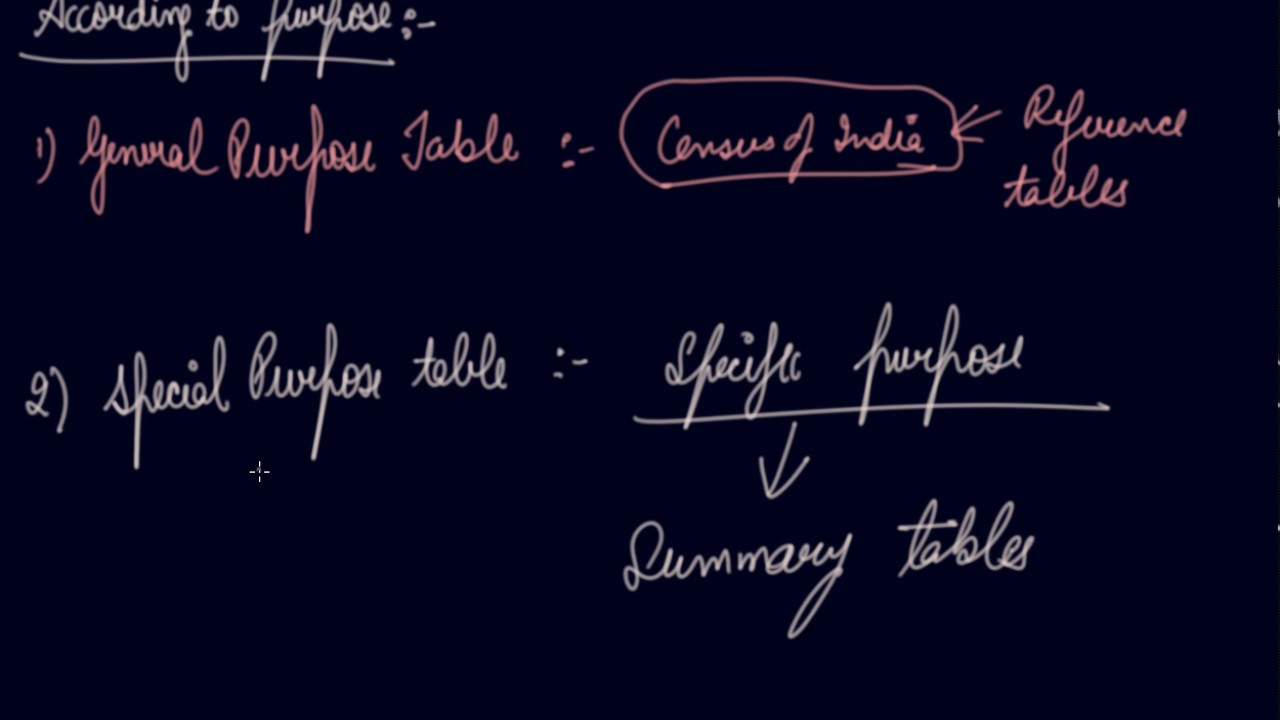 According to purpose:-
1) General Purpose Table :- Census of India ← Reference
tables
2) Special Purpose table :- Specific purpose
Summary tables